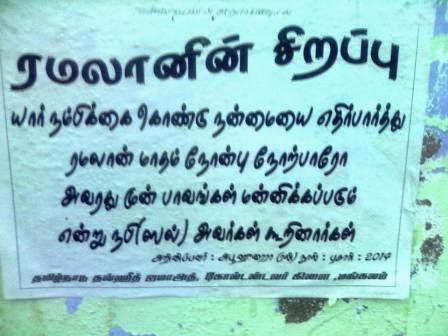 ரமலானின் சிறப்பு
யார் நம்பிக்கை கொண்டு நன்மையை எதிர்பார்த்து
ரமலான் மாதம் நோன்பு நோற்பாரோ
அவரது முன் பாவங்கள் மன்னிக்கப்படும்
என்று நபி(ஸல்) அவர்கள் கூறினார்கள்
அறிவிப்பவர் : அபூஹுரைரா (ரலி) நூல் : புகாரி : 2014
தமிழ்நாடு தவ்ஹீத் ஜமாஅத், கிளை